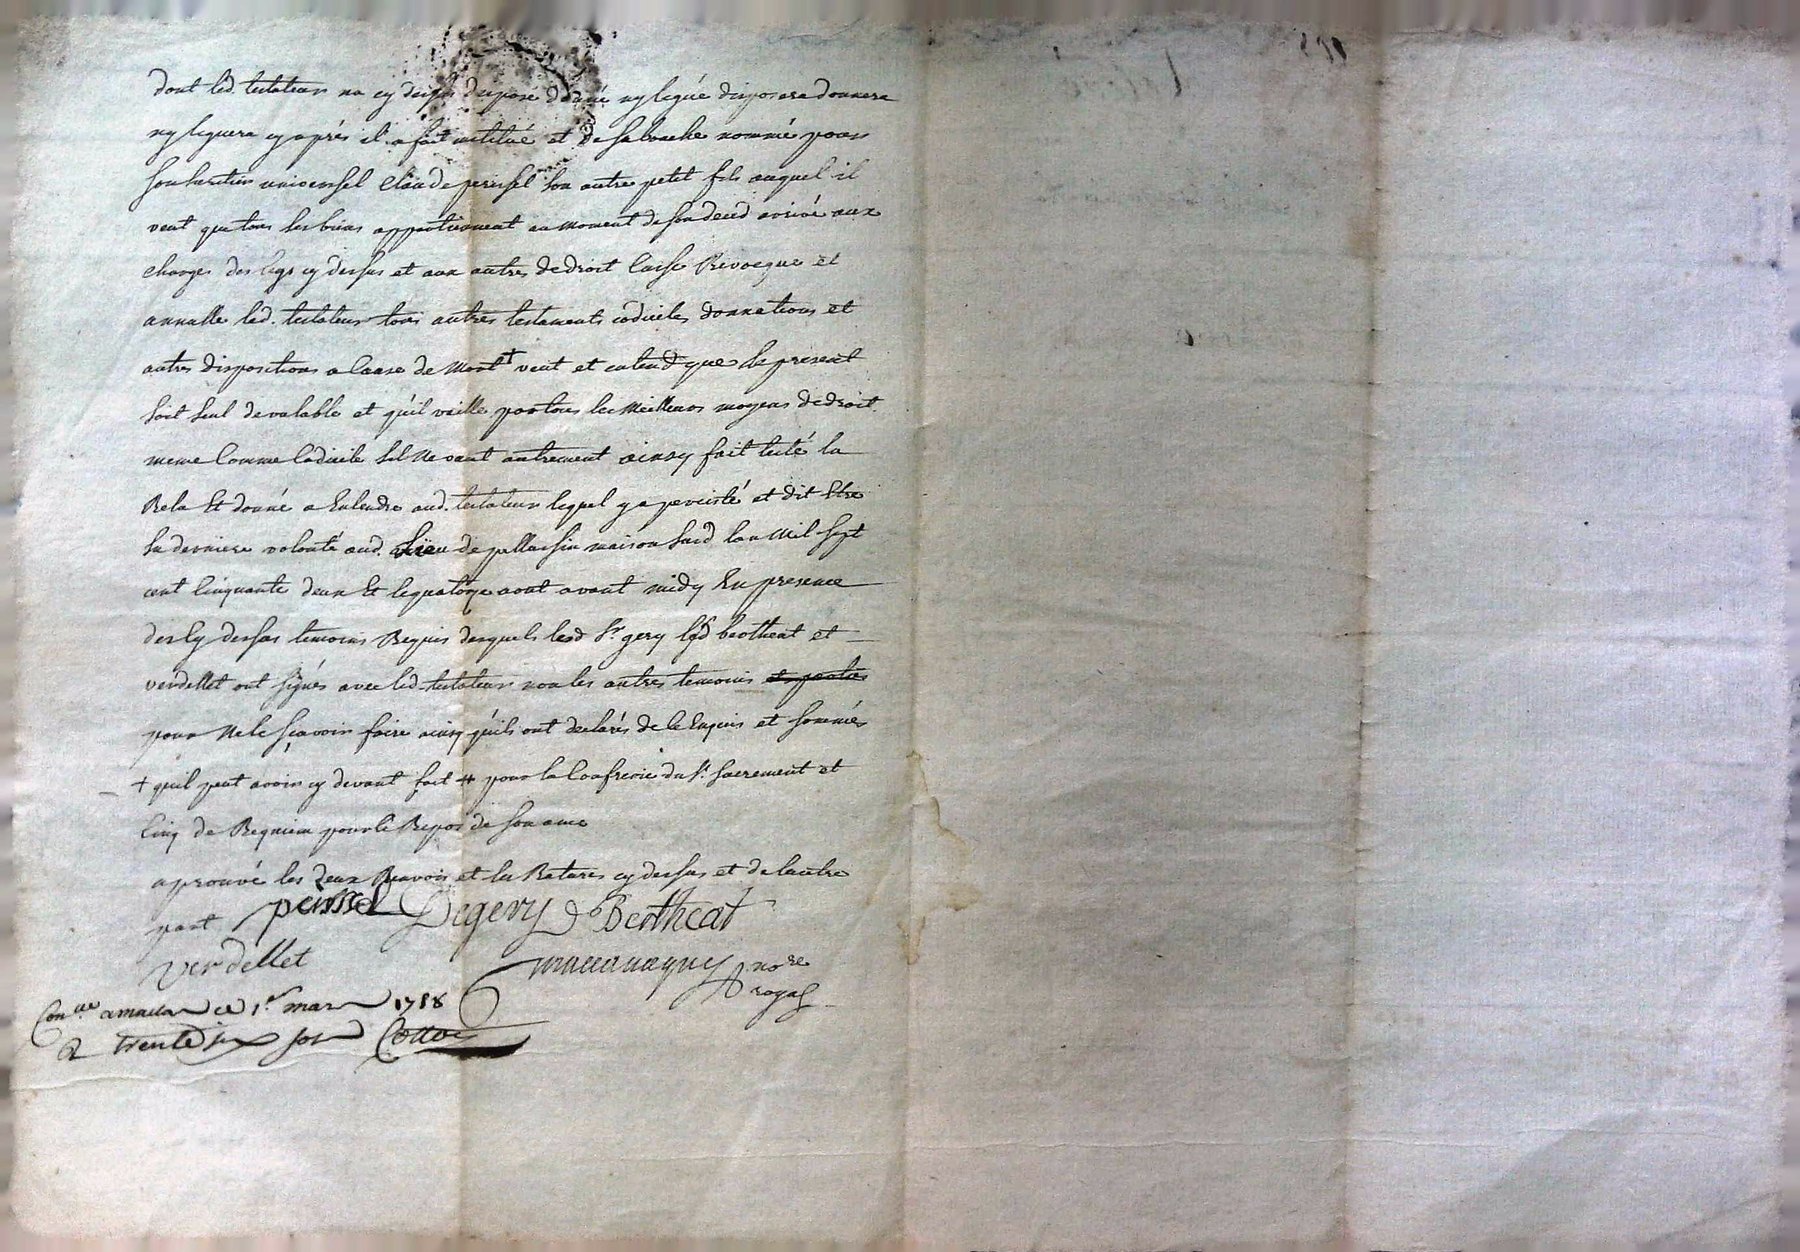 dont led. testateur na cy dessus disposé donné ny legué disposera donnera
ny leguera cy après il a fait institué et de sa bouche nommé pour
son heritier universel Claude peissel son autre petit fils auquel il
veut que tous ses biens appartiennent au moment de son deced arrivé aux
charges des legs cy dessus et aux autres de droit Casse Revocque et
annulle led. testateur tous autres testaments codiciles donnations et
autres dispositions a cause de Mort veut et entend que le présent
soit seul devalable et qu'il vaille par tous les Meilleurs moyens de droit
meme Comme Codicile sil Ne vaut autrement ainsy fait testé lu
Relu Et donné a Entendre aud. testateur lequel y a percisté et dit Etre
sa derniere volonté aud. lieu de maison sud lan Mil sept
cent Cinquante deux Et le quatorze aout avant midy En présence
des Cy dessus temoins Requis desquels lesd Sr. gery bertheat et
verdellet ont signés avec led. testateur non les autres temoins
pour Ne le sçavoir faire ainsy qu'ils ont declarés de ce Enquis et sommés
+ quil peut avoir cy devant fait # pour la Confrerie du St. Sacrement et
Cinq de Requiem pour le Repos de son ame
aprouvé les deux Renvois et les Ratures cy dessus et de lautre
part peissel Degery Bertheat
verdellet nore
royal
Conlle a macon ce 1er mars 1758
R trente six sols